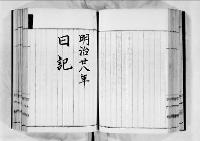 明治廿八年
日記